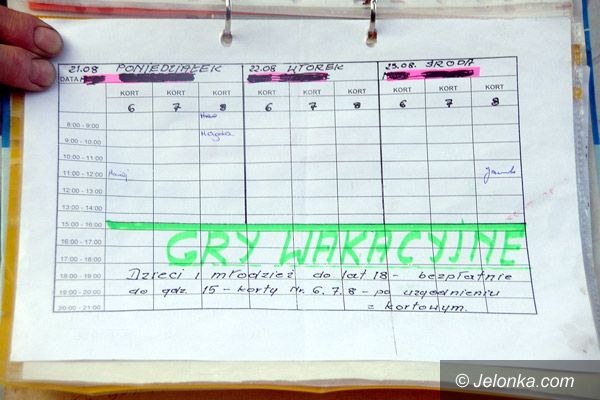 21.08 PONIEDZIAŁEK 22.08 WTOREK 23.08. ŚRODA
DATA
KORT KORT KORT KORT KORT KORT KORT KORT KORT
6 7 8 6 7 8 6 7 8
8:00 - 9:00
9:00 - 10:00 Magda
10:00 - 11:00
11:00 - 12:00 Maciej
12:00 - 13:00
13:00 - 14:00
15:00 - 16:00
16:00 - 17:00 GRY WAKACYJNE
17:00 - 18:00
18:00 - 19:00 Dzieci i młodzież do lat 18 - bezpłatnie
19:00 - 20:00 do godz. 15 - korty Nr. 6, 7, 8 - po uzgodnieniu
20:00 - 21:00 z kortowym.
© Jelonka.com